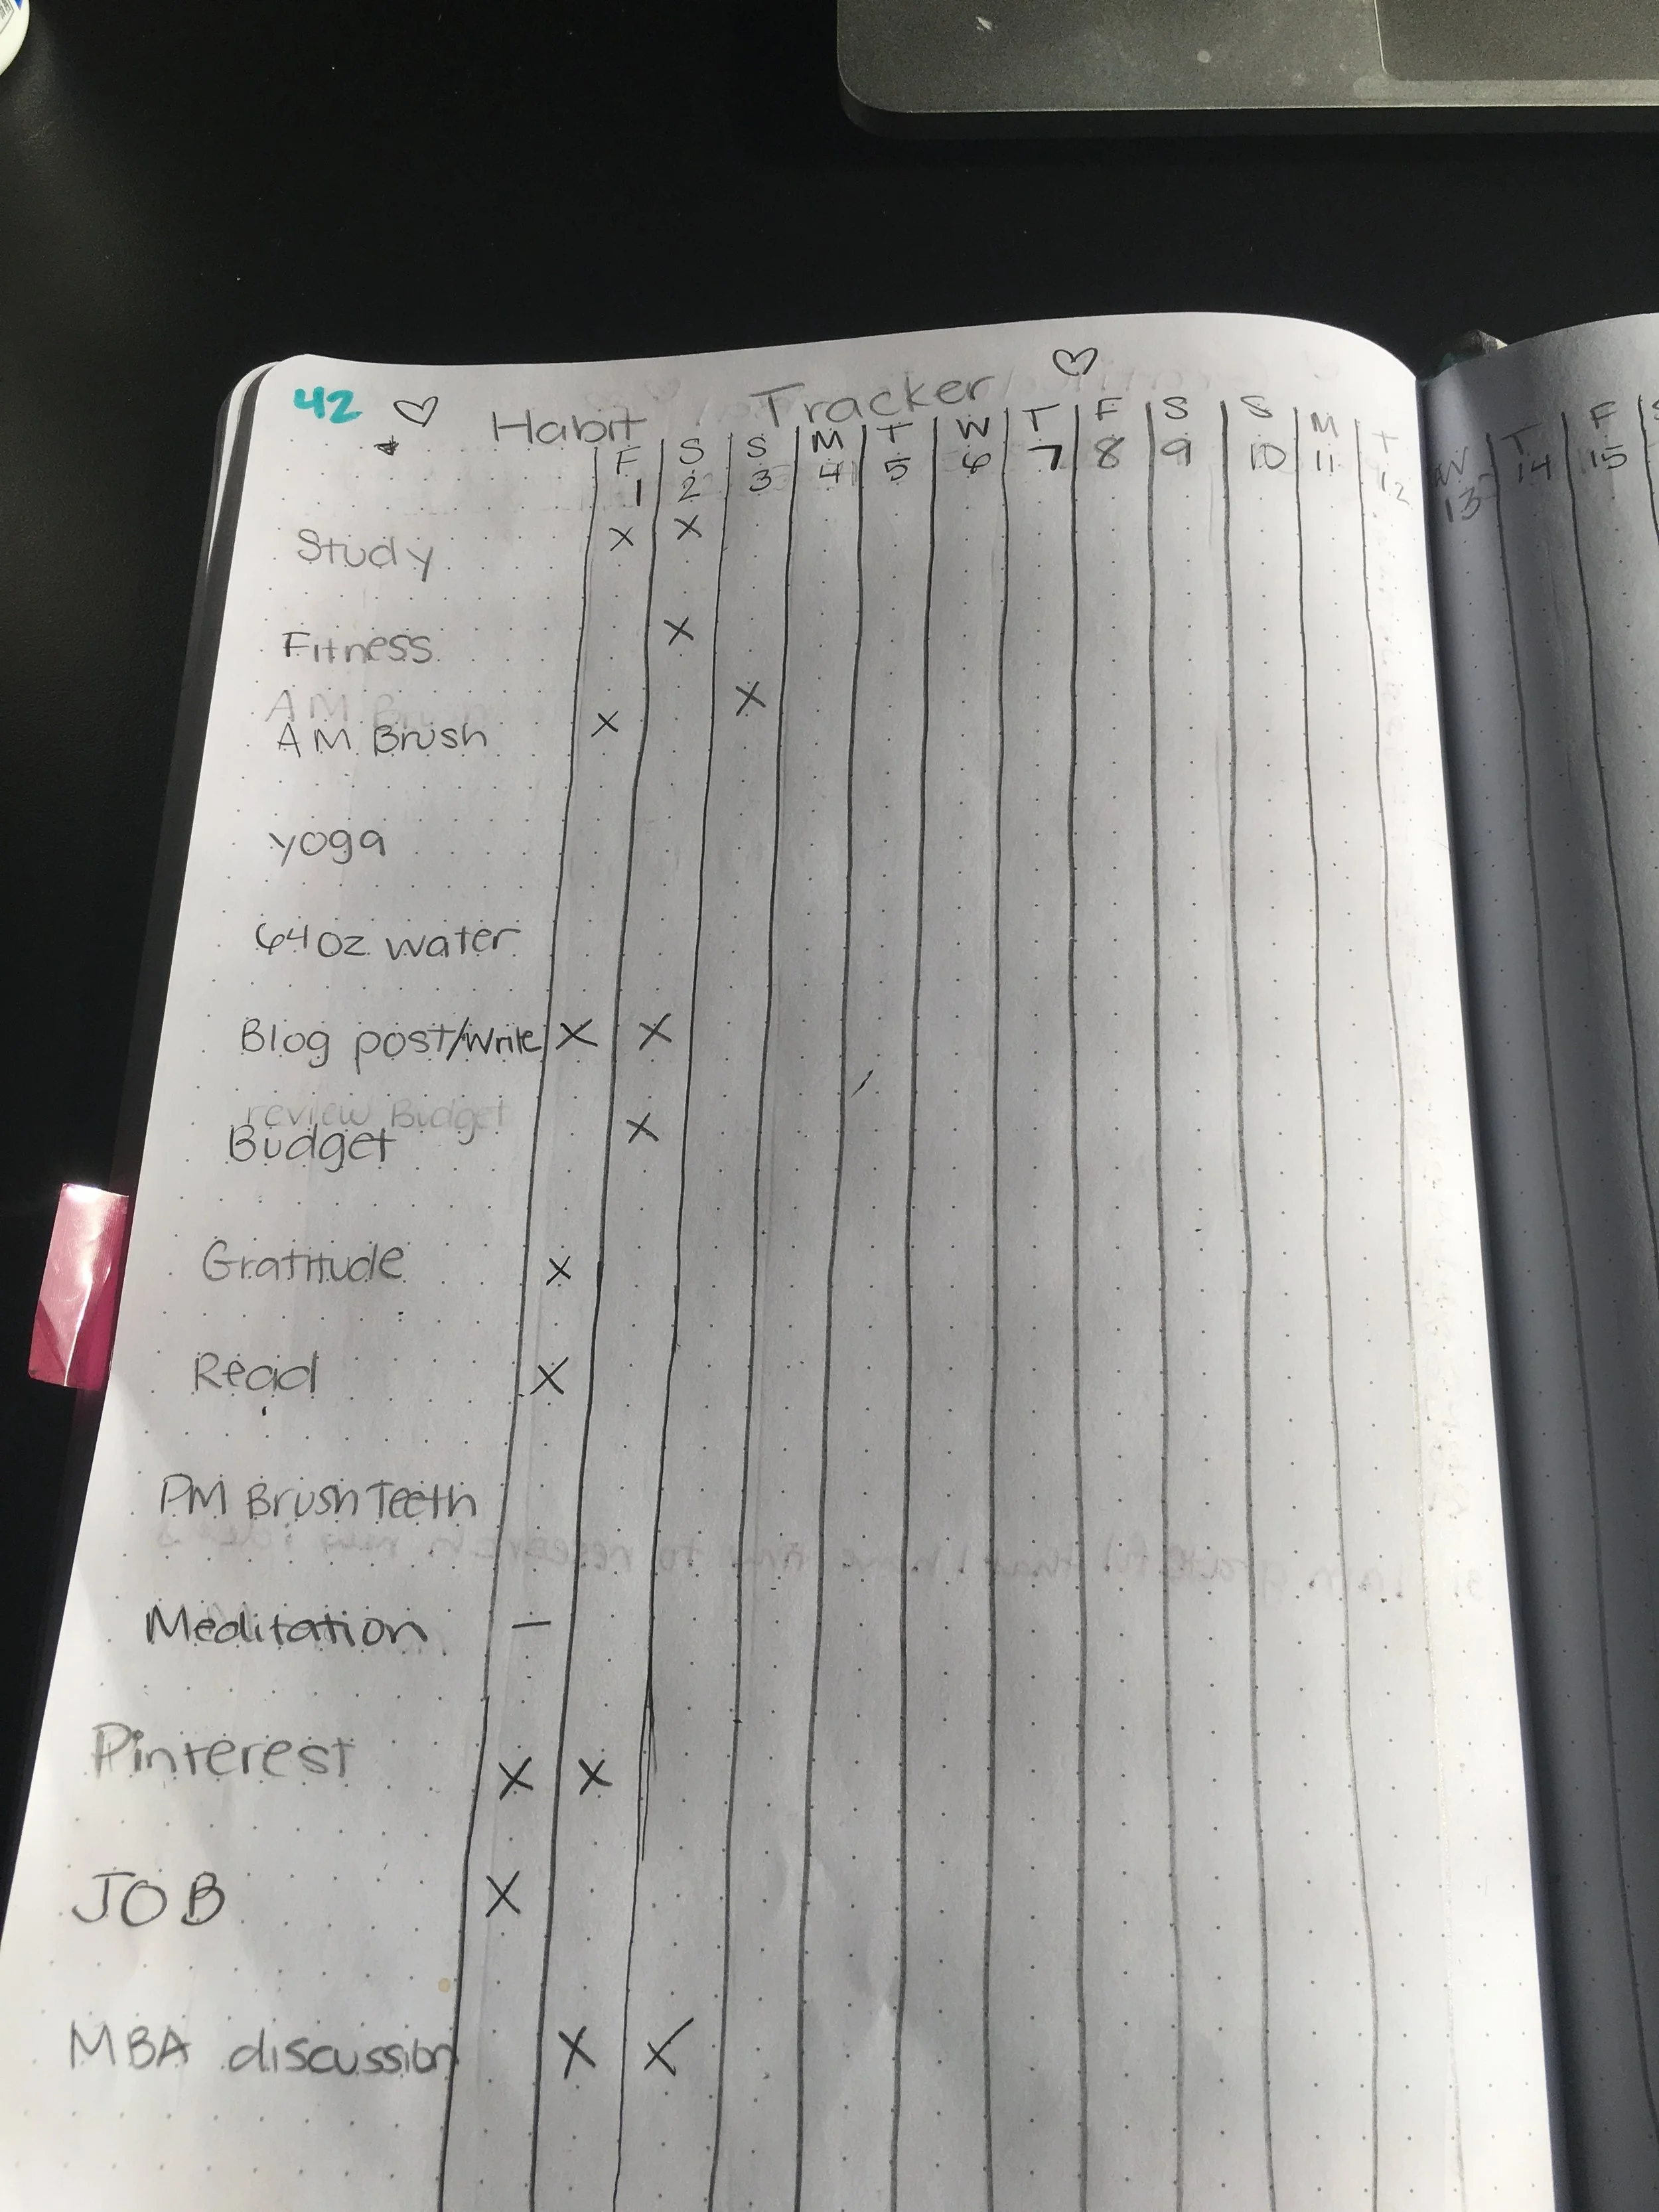 42 Habit Tracker
F S S M T W T F S S M T W T F S
1 2 3 4 5 6 7 8 9 10 11 12 13 14 15
Study X X
Fitness X
AM Brush
AM Brush X X
yoga
64oz water
Blog post/Write X X
review Budget
Budget X
Gratitude X
Read X
PM Brush Teeth
Meditation —
Pinterest X X
JOB X
MBA discussion X X